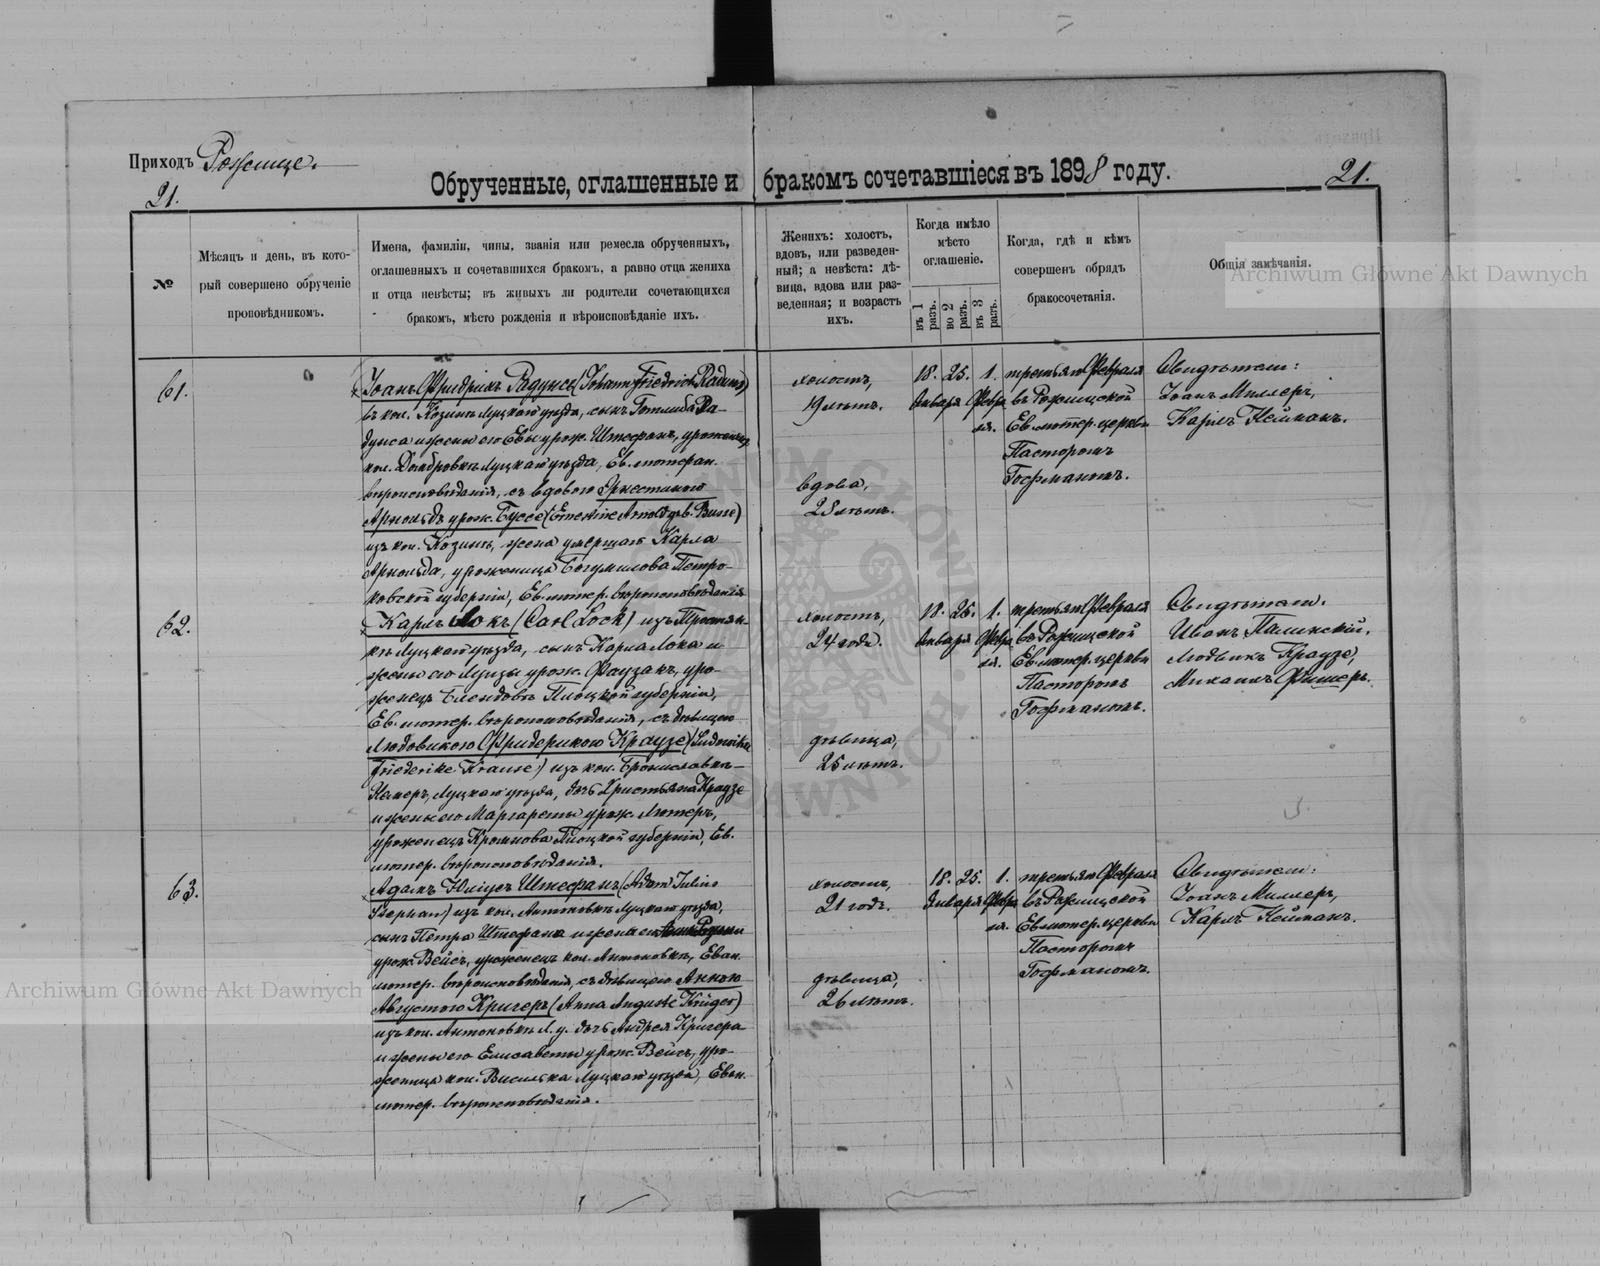 Приходъ Рожище.
21.
Обрученные, оглашенные и бракомъ сочетавшіеся въ 1898 году.
21.
№
Мѣсяцъ и день, въ кото-
рый совершено обрученіе
проповѣдникомъ.
Имена, фамиліи, чины, званія или ремесла обрученныхъ,
оглашенныхъ и сочетавшихся бракомъ, а равно отца жениха
и отца невѣсты; въ живыхъ ли родители сочетающихся
бракомъ, мѣсто рожденія и вѣроисповѣданіе ихъ.
Женихъ: холостъ,
вдовъ, или разведен-
ный; а невѣста: дѣ-
вица, вдова или раз-
веденная; и возрастъ
ихъ.
Когда имѣло
мѣсто
оглашеніе.
въ 1 разъ.
во 2 разъ.
въ 3 разъ.
Когда, гдѣ и кѣмъ
совершенъ обрядъ
бракосочетанія.
Общія замѣчанія.
Archiwum Główne Akt Dawnych
61.
Іоанъ Фридрихъ Радунсъ (Johann Friedrich Raduns)
въ кол. Козинъ Луцкаго уѣзда, сынъ Готлиба Ра-
дунса и жены его Евы урож. Штефанъ, уроженецъ
кол. Домбровкъ Луцкаго уѣзда, Ев. лютеран.
вѣроисповѣданія, съ вдовою Эрнестиною
Арнольдъ урож. Буссе (Ernestine Arnold geb. Busse)
изъ кол. Козинъ, жена умершаго Карла
Арнольда, уроженица Богумилова Петро-
ковской губерніи, Ев. лютер. вѣроисповѣданія
холостъ,
19 лѣтъ.
вдова,
28 лѣтъ.
18. 25. 1.
Января Февра
ля.
третьяго Февраля
въ Рожищской
Ев. лютер. церкви
Пасторомъ
Гофманомъ.
Свидѣтели:
Іоанъ Миллеръ,
Карлъ Нейманъ.
62.
Карлъ Локъ (Carl Lock) изъ
къ Луцкаго уѣзда, сынъ Карла Лока и
жены его Луизы урож. Фаузакъ, уро-
женецъ Плоцкой губерніи,
Ев. лютер. вѣроисповѣданія, съ дѣвицею
Людовикою Фридерикою Краузе (Ludowika
Friederike Krause) изъ кол. Брониславкъ-
Луцкаго уѣзда, дочь Христьяна Краузе
и жены его Маргареты урож. Лютеръ,
уроженецъ Плоцкой губерніи, Ев.
лютер. вѣроисповѣданія.
холостъ,
24 года.
дѣвица,
25 лѣтъ.
18. 25. 1.
Января Февра
ля.
третьяго Февраля
въ Рожищской
Ев. лютер. церкви
Пасторомъ
Гофманомъ.
Свидѣтели.
Иванъ Палинскій,
Людвикъ Краузе,
Михаилъ Фишеръ.
63.
Адамъ Юліусъ Штефанъ (Adam Julius
Stephan) изъ кол. Антоновкъ Луцкаго уѣзда,
сынъ Петра Штефана и жены его
урож. Вейсъ, уроженецъ кол. Антоновкъ, Еван.
лютер. вѣроисповѣданія, съ дѣвицею Анною
Августою Кригеръ (Anna Auguste Krüger)
изъ кол. Антоновкъ Л. у. дочь Андрея Кригера
и жены его Елисаветы урож. Вейсъ, уро-
женица кол. Луцкаго уѣзда, Еван.
лютер. вѣроисповѣданія.
холостъ,
21 годъ.
дѣвица,
26 лѣтъ.
18. 25. 1.
Января Февра
ля.
третьяго Февраля
въ Рожищской
Ев. лютер. церкви
Пасторомъ
Гофманомъ.
Свидѣтели:
Іоанъ Миллеръ,
Карлъ Нейманъ.
Archiwum Główne Akt Dawnych